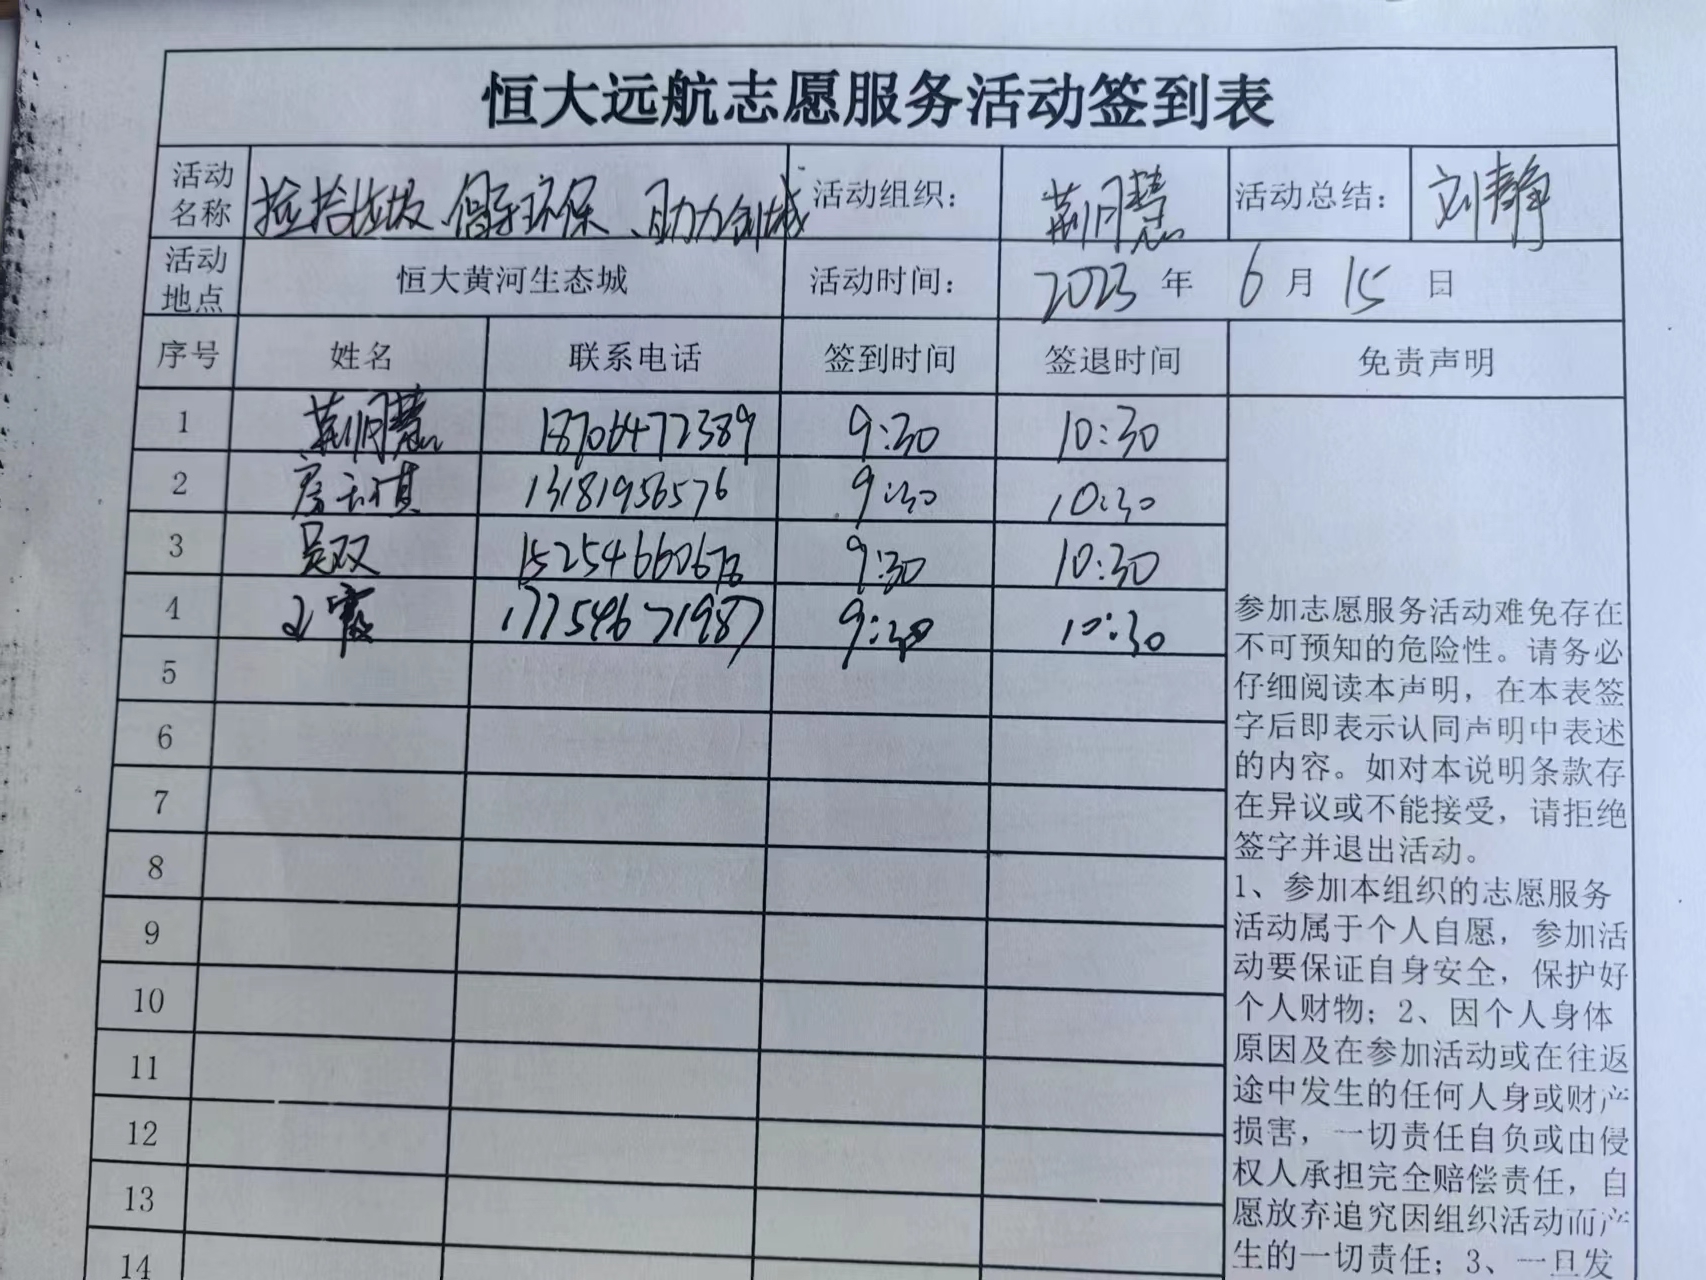 恒大远航志愿服务活动签到表
活动名称 捡拾垃圾、倡导环保、助力创城 活动组织： 荆月慧 活动总结： 刘静
活动地点 恒大黄河生态城 活动时间： 2023 年 6 月 15 日
序号 姓名 联系电话 签到时间 签退时间 免责声明
1 荆月慧 18706472389 9:30 10:30
2 13181956576 9:30 10:30
3 吴双 9:30 10:30
4 王霞 17754671987 9:30 10:30
5
6
7
8
9
10
11
12
13
14
参加志愿服务活动难免存在
不可预知的危险性。请务必
仔细阅读本声明，在本表签
字后即表示认同声明中表述
的内容。如对本说明条款存
在异议或不能接受，请拒绝
签字并退出活动。
1、参加本组织的志愿服务
活动属于个人自愿，参加活
动要保证自身安全，保护好
个人财物；2、因个人身体
原因及在参加活动或在往返
途中发生的任何人身或财产
损害，一切责任自负或由侵
权人承担完全赔偿责任，自
愿放弃追究因组织活动而产
生的一切责任；3、一旦发